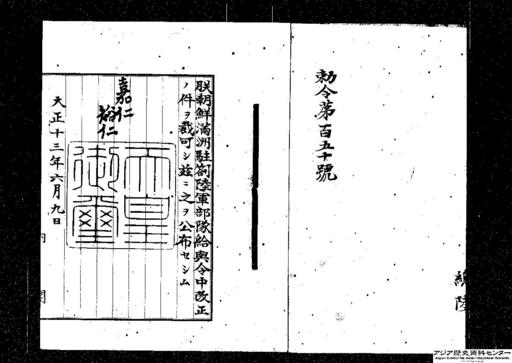 勅令第百五十號
朕朝鮮滿洲駐劄陸軍部隊給與令中改正
ノ件ヲ裁可シ茲ニ之ヲ公布セシム
嘉仁
裕仁
天皇
御璽
大正十三年六月九日
内閣
アジア歴史資料センター
Japan Center for Asian Historical Records